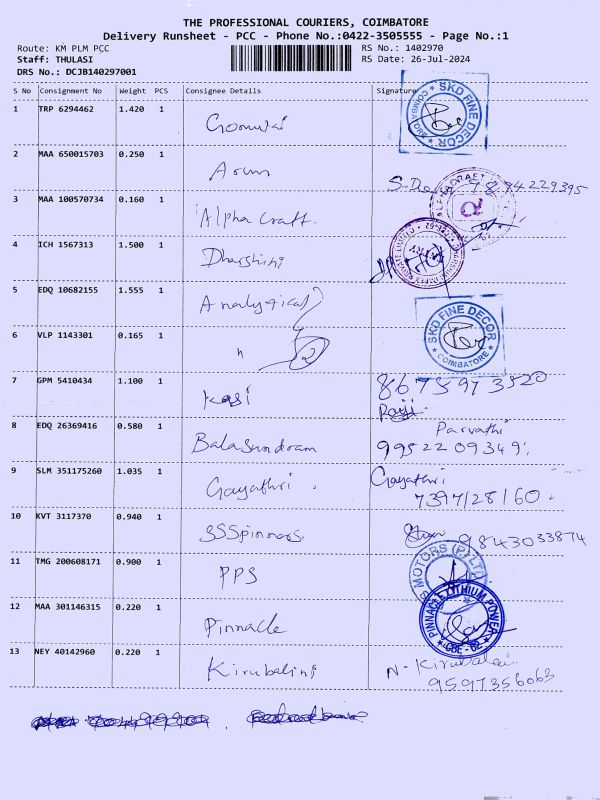 THE PROFESSIONAL COURIERS, COIMBATORE
Delivery Runsheet - PCC - Phone No.:0422-3505555 - Page No.:1
Route: KM PLM PCC
Staff: THULASI
DRS No.: DCJB140297001
RS No.: 1402970
RS Date: 26-Jul-2024
S No Consignment No Weight PCS Consignee Details Signature
1 TRP 6294462 1.420 1 SKD FINE DECOR COIMBATORE
2 MAA 650015703 0.250 1 Arun 9894229395
3 MAA 100570734 0.160 1 Alpha Craft
4 ICH 1567313 1.500 1 Dharshini
5 EDQ 10682155 1.555 1 Analytical
6 VLP 1143301 0.165 1 " 2 SKD FINE DECOR COIMBATORE
7 GPM 5410434 1.100 1 Kasi 8675973520
8 EDQ 26369416 0.580 1 Balasundram Parvathi
9952209349
9 SLM 351175260 1.035 1 Gayathri. Gayathri
7397128160.
10 KVT 3117370 0.940 1 SSSpinners 9843033874
11 TMG 200608171 0.900 1 PPS MOTORS (P) LTD
12 MAA 301146315 0.220 1 Pinnacle PINNACLE LITHIUM POWER CBE-62
13 NEY 40142960 0.220 1 Kirubalini N. Kirubalini
9597356063